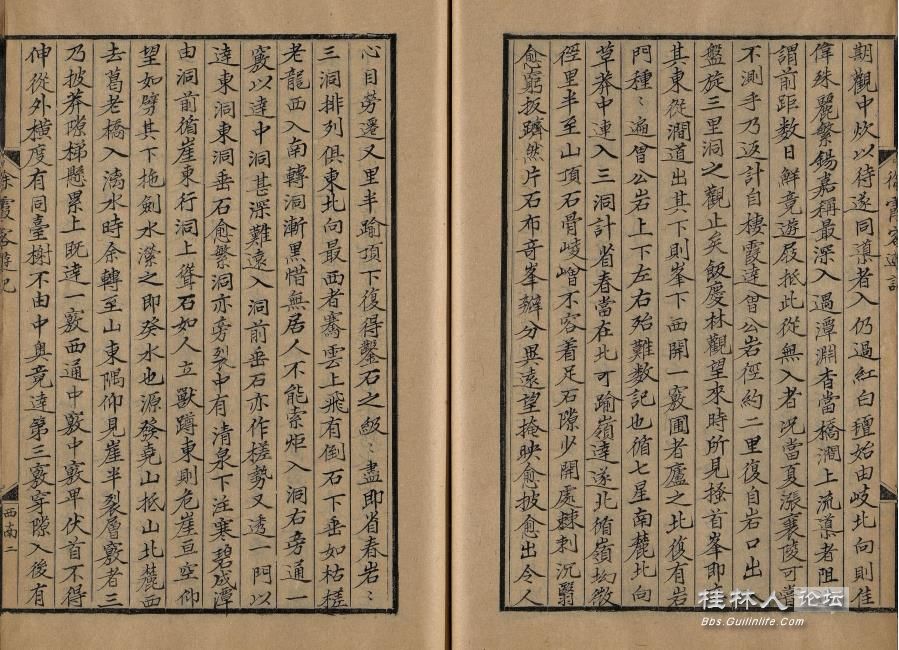 期觀中炊以待遂同導者入仍過紅白氊始由岐北向則佳
偉殊麗繁錫嘉稱最深入過潭淵杳當橋澗上流導者阻
謂前距數日鮮竟遊屐抵此從無入者況當夏漲襄陵可嘗
不測乎乃返計自棲霞達曾公岩徑約二里復自岩口出入
盤旋三里洞之觀止矣飯慶林觀望來時所見搔首峯即
其東從澗道出其下則峯下西開一竅圃者廬之北復有岩
門種〻遍曾公岩上下左右殆難數記也循七星南麓北向
草莽中連入三洞計省春當在北可踰嶺達遂北循嶺坳微
徑里半至山頂石骨崚嶒不容着足石隙少開處棘刺沉翳
愈窮扳躋然片石布奇峯瓣分畢遠望掩映愈披愈出令人
徐霞客遊記
心目勞遷又里半踰頂下復得鑿石之級〻盡即省春岩〻
三洞排列俱東北向最西者騫雲上飛有倒石下垂如枯槎
老龍西入南轉洞漸黑惜無居人不能索炬入洞右旁通一
竅以達中洞甚深難遠入洞前垂石亦作槎勢又透一門以
達東洞東洞垂石愈繁洞亦旁裂中有清泉下注寒碧成潭
由洞前循崖東行洞上聳石如人立獸蹲東則危崖亘空仰
望如劈其下拖劍水瀠之即癸水也源發堯山抵山北麓西
去葛老橋入漓水時余轉至山東隅仰見崖半裂層竅者三
乃披莽隙梯懸累上既達一竅西通中竅中竅卑伏首不得
伸從外橫度有同臺榭不由中奧竟達第三竅穿隙入後有
徐霞客遊記
西南二
桂林人论坛
Bbs.Guilinlife.Com